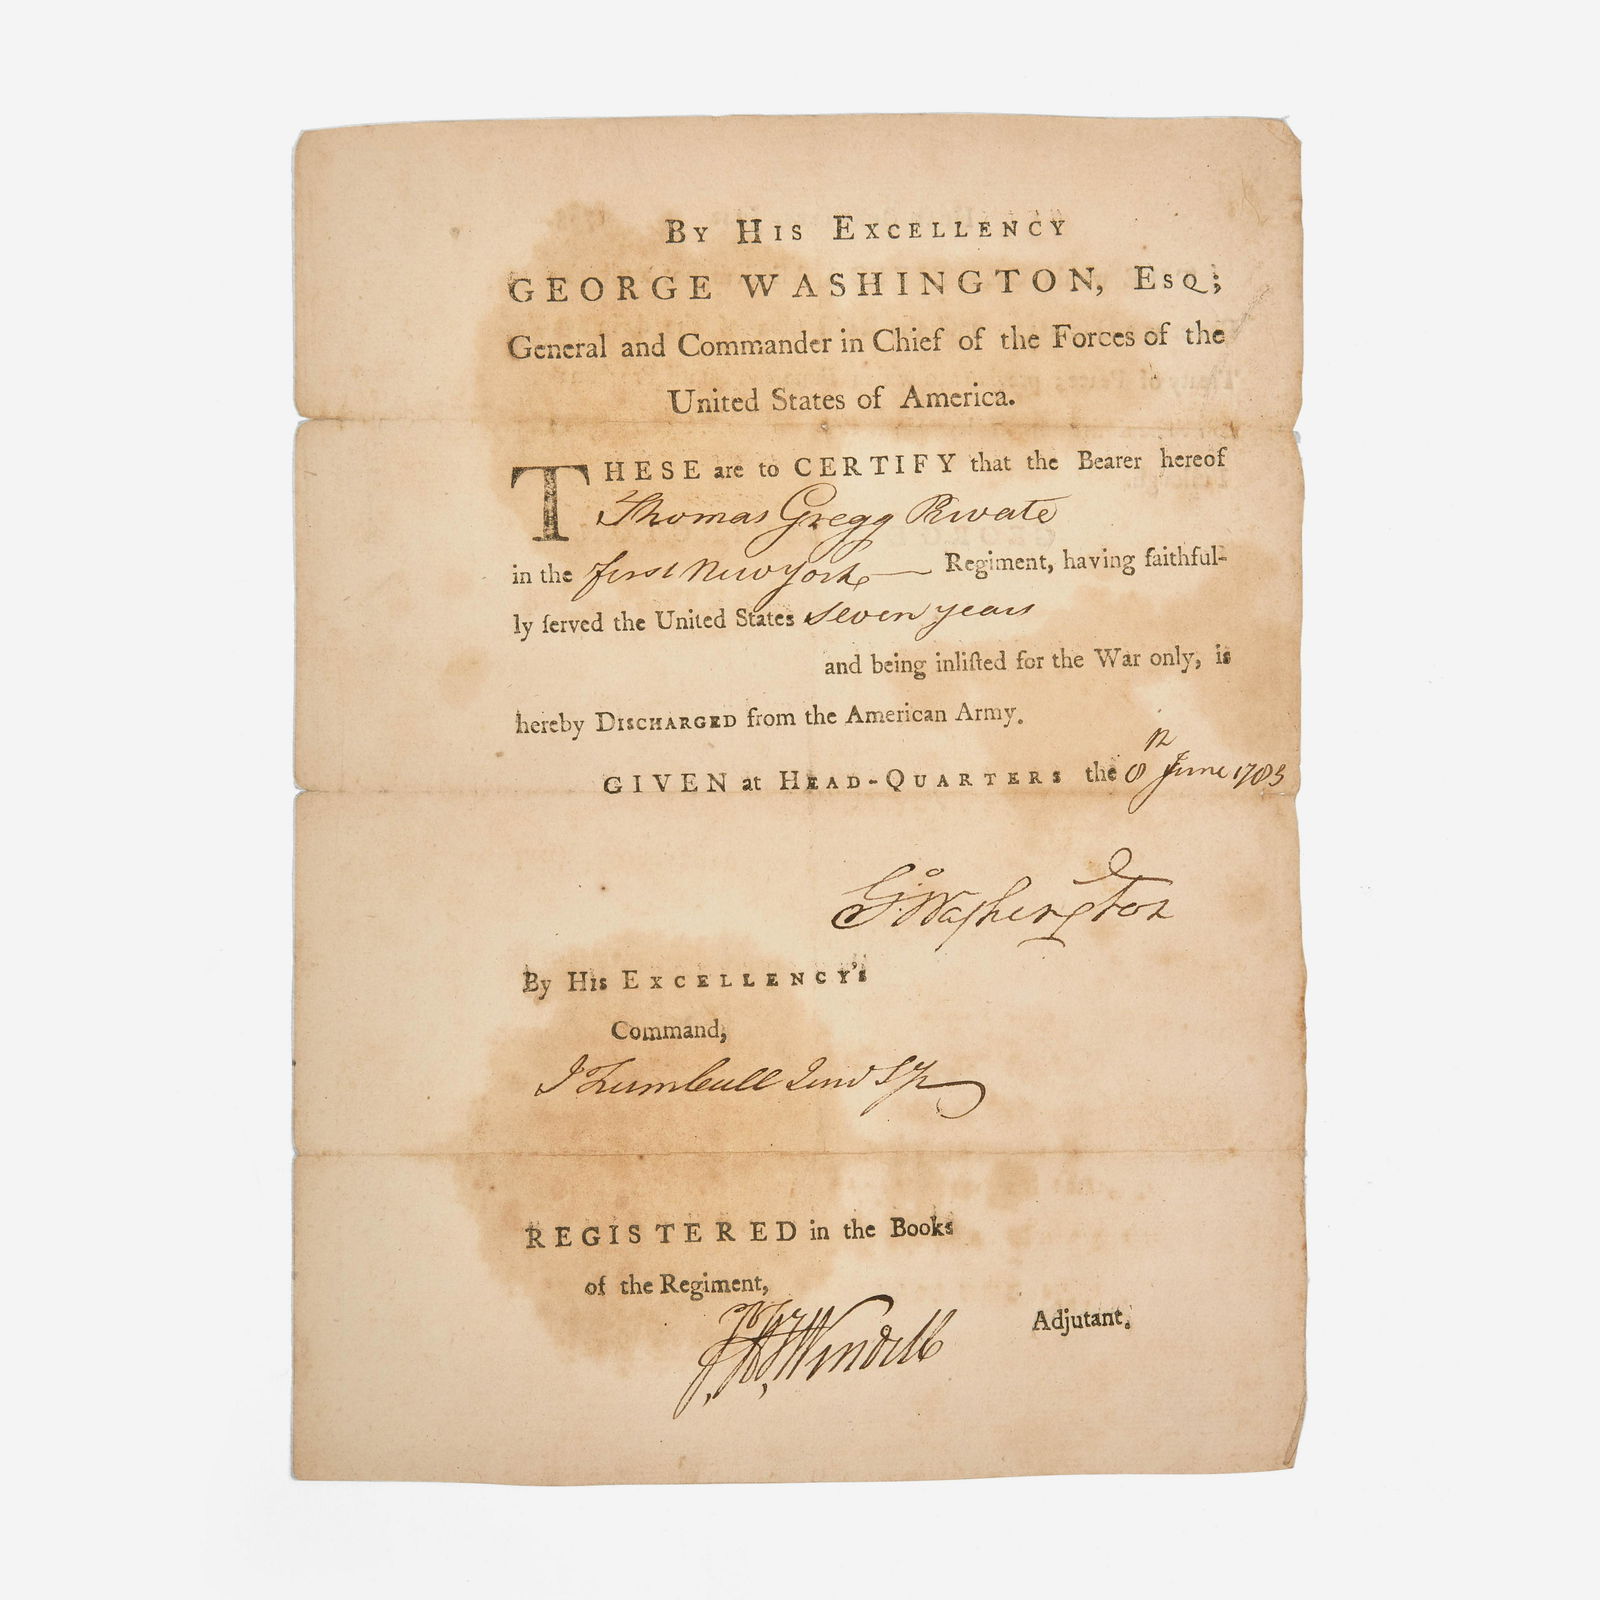 By His Excellency
GEORGE WASHINGTON, Esq;
General and Commander in Chief of the Forces of the
United States of America.
THESE are to CERTIFY that the Bearer hereof
Thomas Gregg Private
in the first New York Regiment, having faithful-
ly ſerved the United States seven years
and being inliſted for the War only, is
hereby Discharged from the American Army.
GIVEN at Head-Quarters the 8th June 1783
Go: Washington
By His Excellency's
Command,
J Trumbull Jun Sy
REGISTERED in the Books
of the Regiment,
Wendell Adjutant.